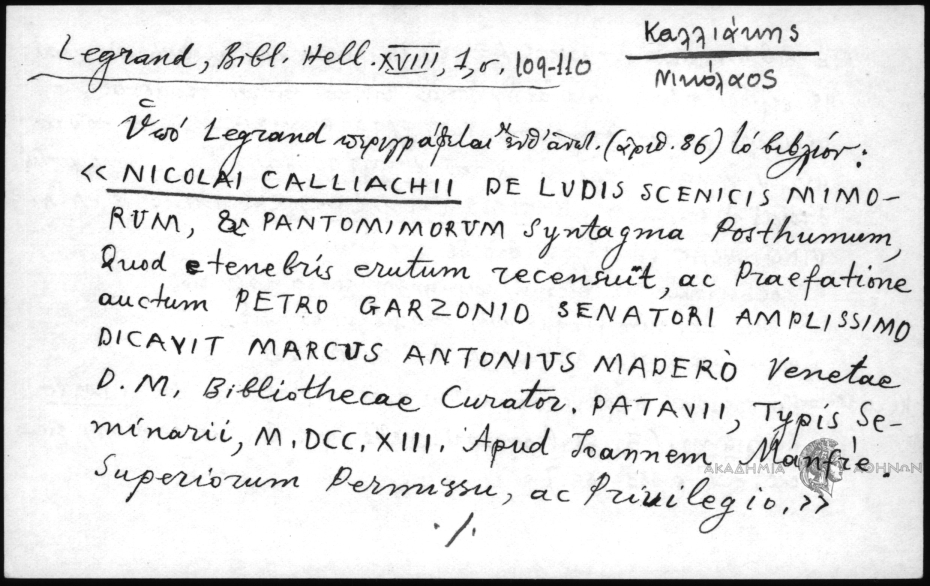 Καλλιάκης
Νικόλαος
Legrand, Bibl. Hell. XVIII, 1, σ. 109-110
Ὑπό Legrand περιγράφεται (ἀριθ. 86) τό βιβλίον:
« NICOLAI CALLIACHII DE LUDIS SCENICIS MIMO-
RUM, & PANTOMIMORVM Syntagma Posthumum,
Quod e tenebris erutum recensuit, ac Praefatione
auctum PETRO GARZONIO SENATORI AMPLISSIMO
DICAVIT MARCUS ANTONIVS MADERÒ Venetae
D. M. Bibliothecae Curator. PATAVII, Typis Se-
minarii, M. DCC. XIII. Apud Ioannem Manfrè.
ΑΚΑΔΗΜΙΑ ΑΘΗΝΩΝ
Superiorum Permissu, ac Privilegio. »
./.